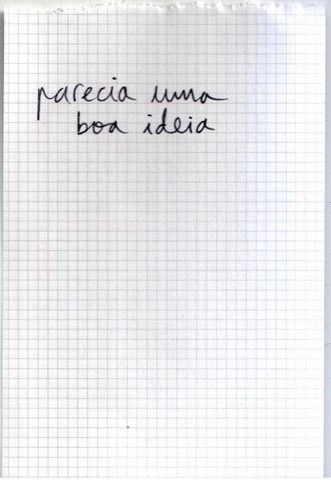 parecia uma
boa ideia